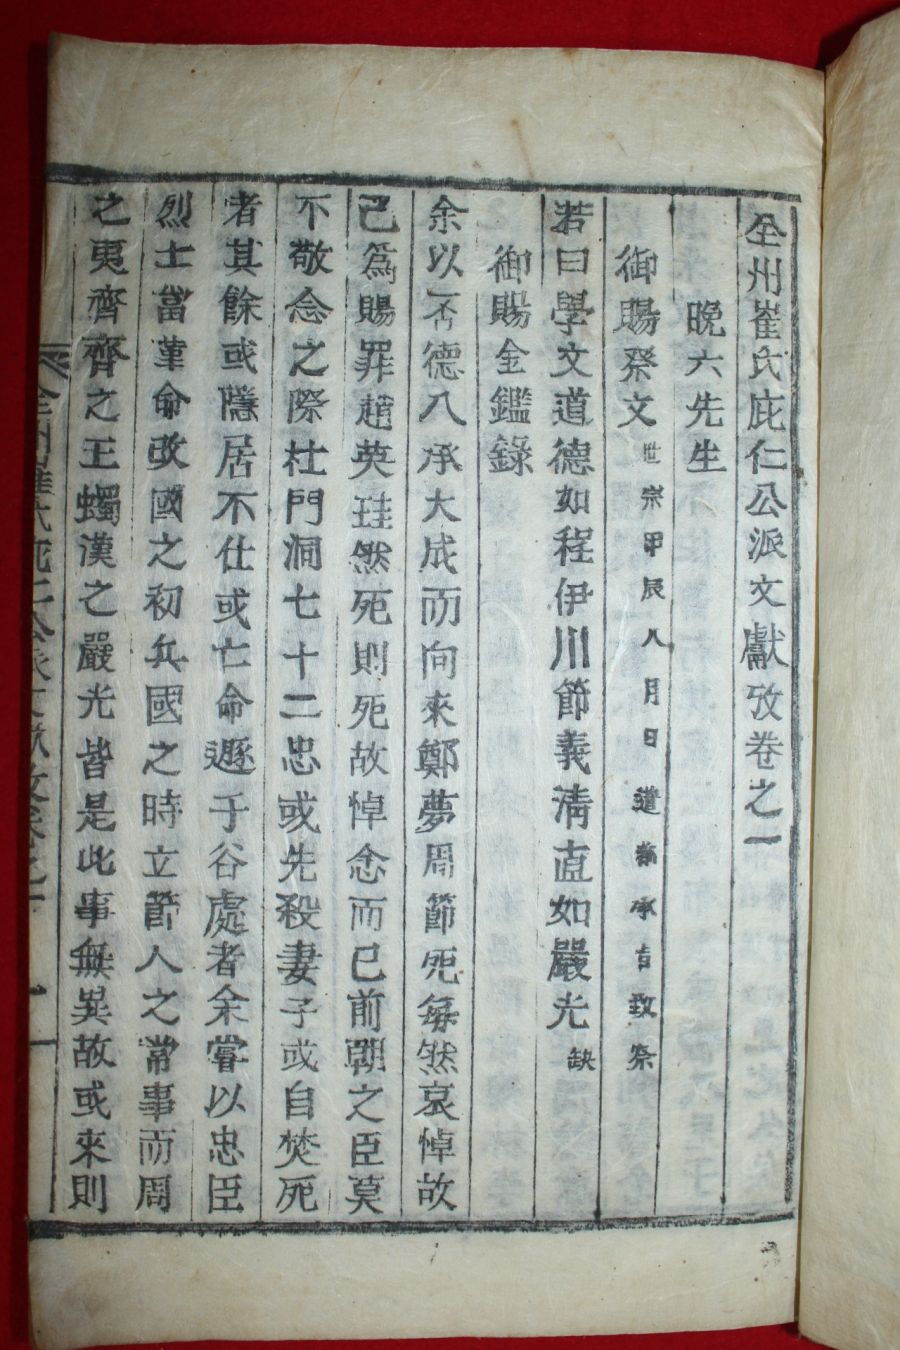 全州崔氏庇仁公派文獻攷卷之一
晩六先生
御賜祭文 世宗甲辰八月日遣 承旨致祭
若曰學文道德如程伊川節義淸直如嚴光 缺
御賜全鑑錄
余以否德八承大成而向來鄭夢周節死每然哀悼故
己爲賜罪趙英珪然死則死故悼念而已前朝之臣莫
不敬念之際杜門洞七十二忠或先殺妻子或自焚死
者其餘或隱居不仕或亡命遯于谷處者余嘗以忠臣
烈士當革命改國之初兵國之時立節人之常事而周
之夷齊齊之王蠋漢之嚴光皆是此事無異故或來則
全州崔氏庇仁公派文獻攷卷之一 一